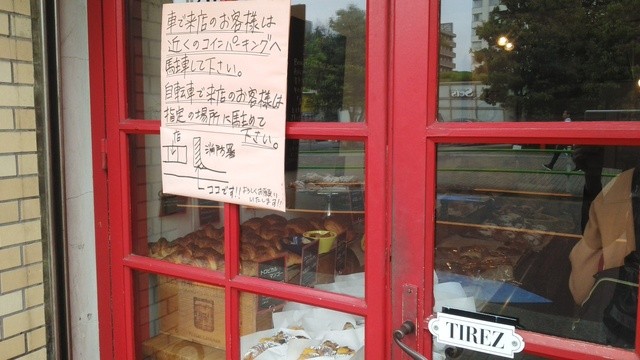 車で来店のお客様は
近くのコインパーキングへ
駐車して下さい。
自転車で来店のお客様は
指定の場所に駐めて
下さい。
店
消防署
ココです!!
よろしくお願い
いたします!!
トロピカル
マンゴー
TIREZ